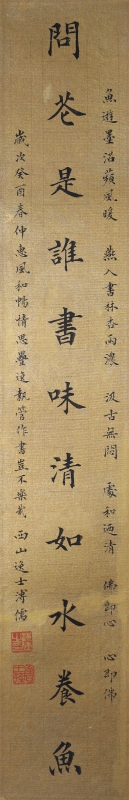 魚遊墨沼蘋風暖　燕入書林杏雨濃　汲古無悶　處和迺清　佛即心　心即佛
問花是誰書味清如水養魚
歲次癸酉春仲惠風和暢情思疊逸執管作書豈不樂哉　西山逸士溥儒